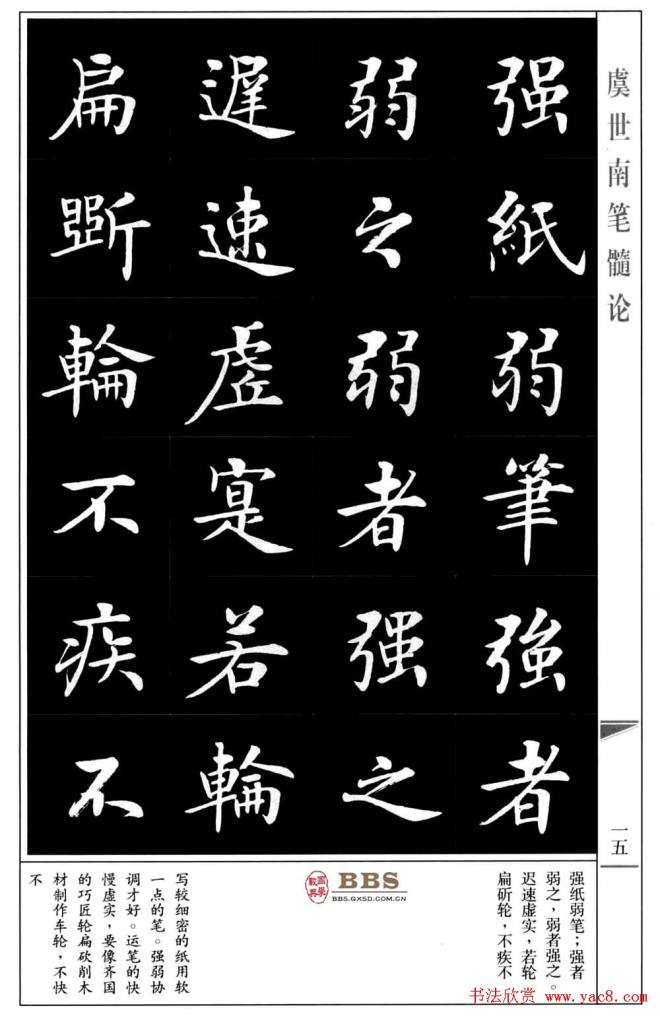 虞世南笔髓论
强紙弱筆強者
弱之弱者强之
遲速虚寔若輪
扁斲輪不疾不
一五
强纸弱笔；强者
弱之，弱者强之。
迟速虚实，若轮
扁斫轮，不疾不
BBS
BBS.GXSD.COM.CN
写较细密的纸用软
一点的笔。强弱协
调才好。运笔的快
慢虚实，要像齐国
的巧匠轮扁砍削木
材制作车轮，不快
不
书法欣赏 www.yac8.com